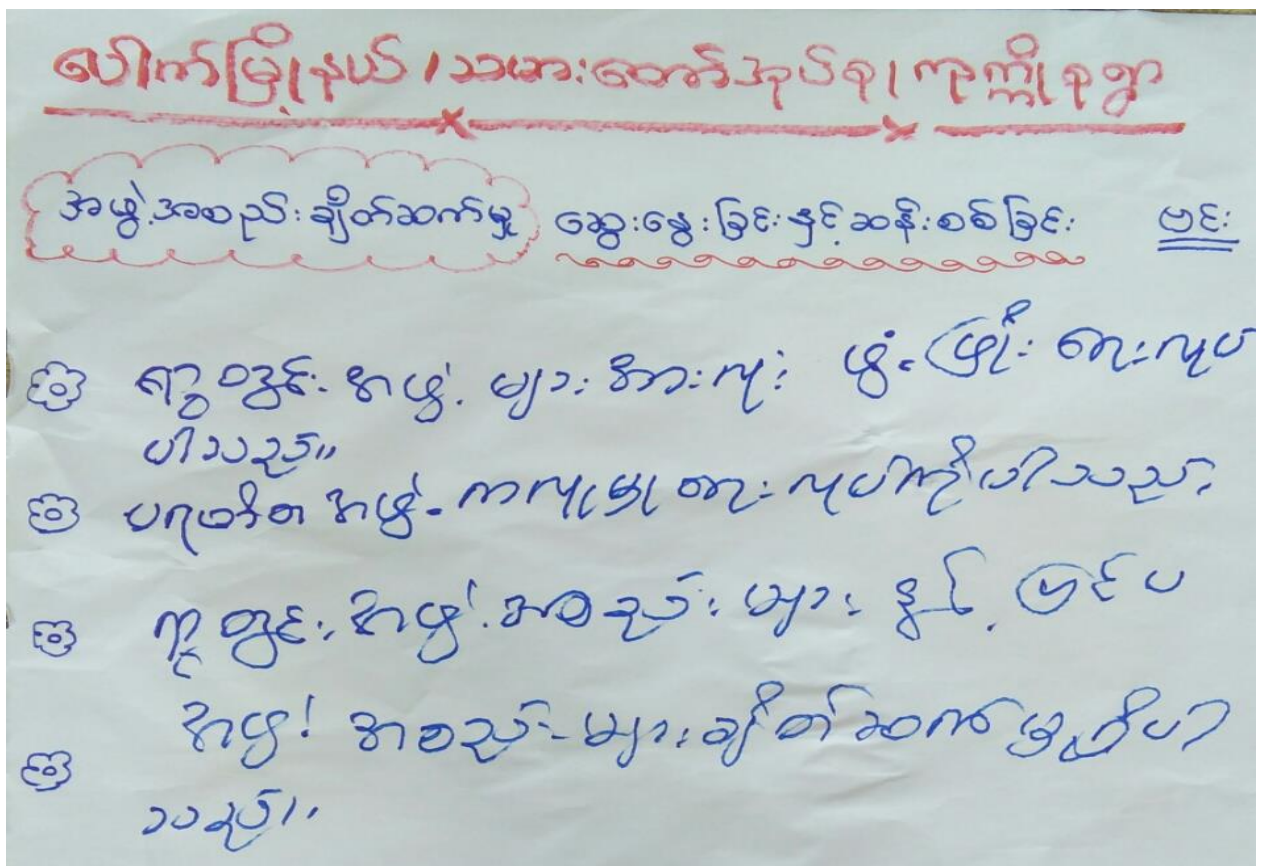 ပေါက်မြို့နယ်၊သမားတော်အုပ်စု၊ကုက္ကိုစုရွာ
အဖွဲ့အစည်းချိတ်ဆက်မှု ဆွေးနွေးခြင်းနှင့်ဆန်းစစ်ခြင်း ဗင်း
ရွာတွင်းအဖွဲ့များအားလုံး ဖွံ့ဖြိုးရေးလုပ်
ပါသည်။
ပရဟိတအဖွဲ့ကလူမှုရေးလုပ်ပါသည်
ရွာတွင်းအဖွဲ့အစည်းများနှင့် ပြင်ပ
အဖွဲ့အစည်းများချိတ်ဆက်မှုရှိပါ
သည်။